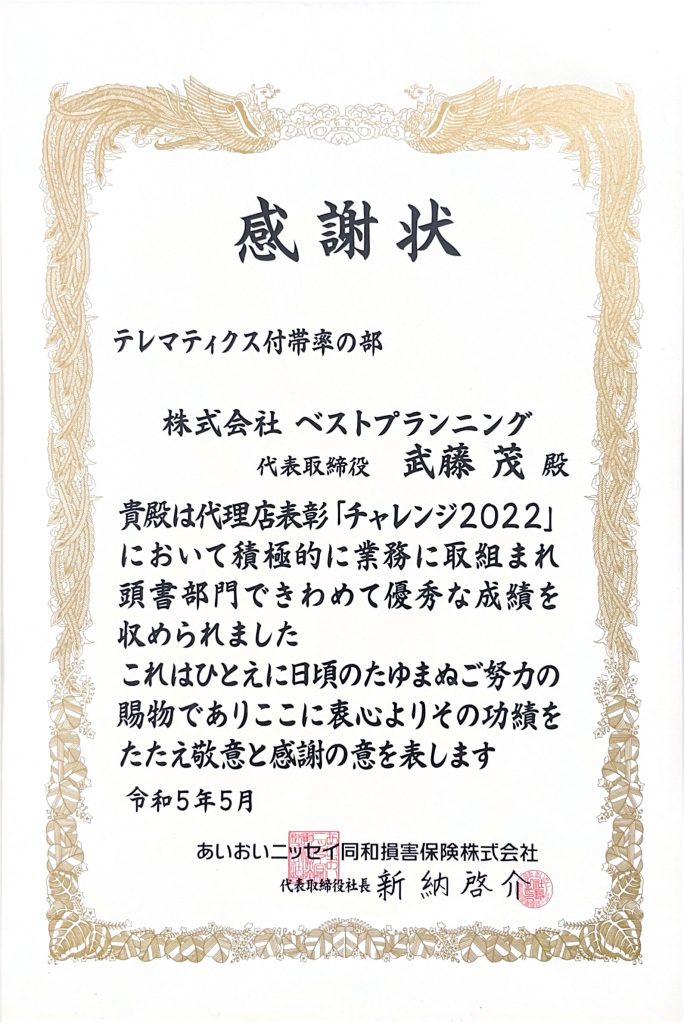 感謝状
テレマティクス付帯率の部
株式会社 ベストプランニング
代表取締役 武藤 茂 殿
貴殿は代理店表彰「チャレンジ2022」
において積極的に業務に取組まれ
頭書部門できわめて優秀な成績を
収められました
これはひとえに日頃のたゆまぬご努力の
賜物でありここに衷心よりその功績を
たたえ敬意と感謝の意を表します
令和5年5月
あいおいニッセイ同和損害保険株式会社
代表取締役社長 新納啓介